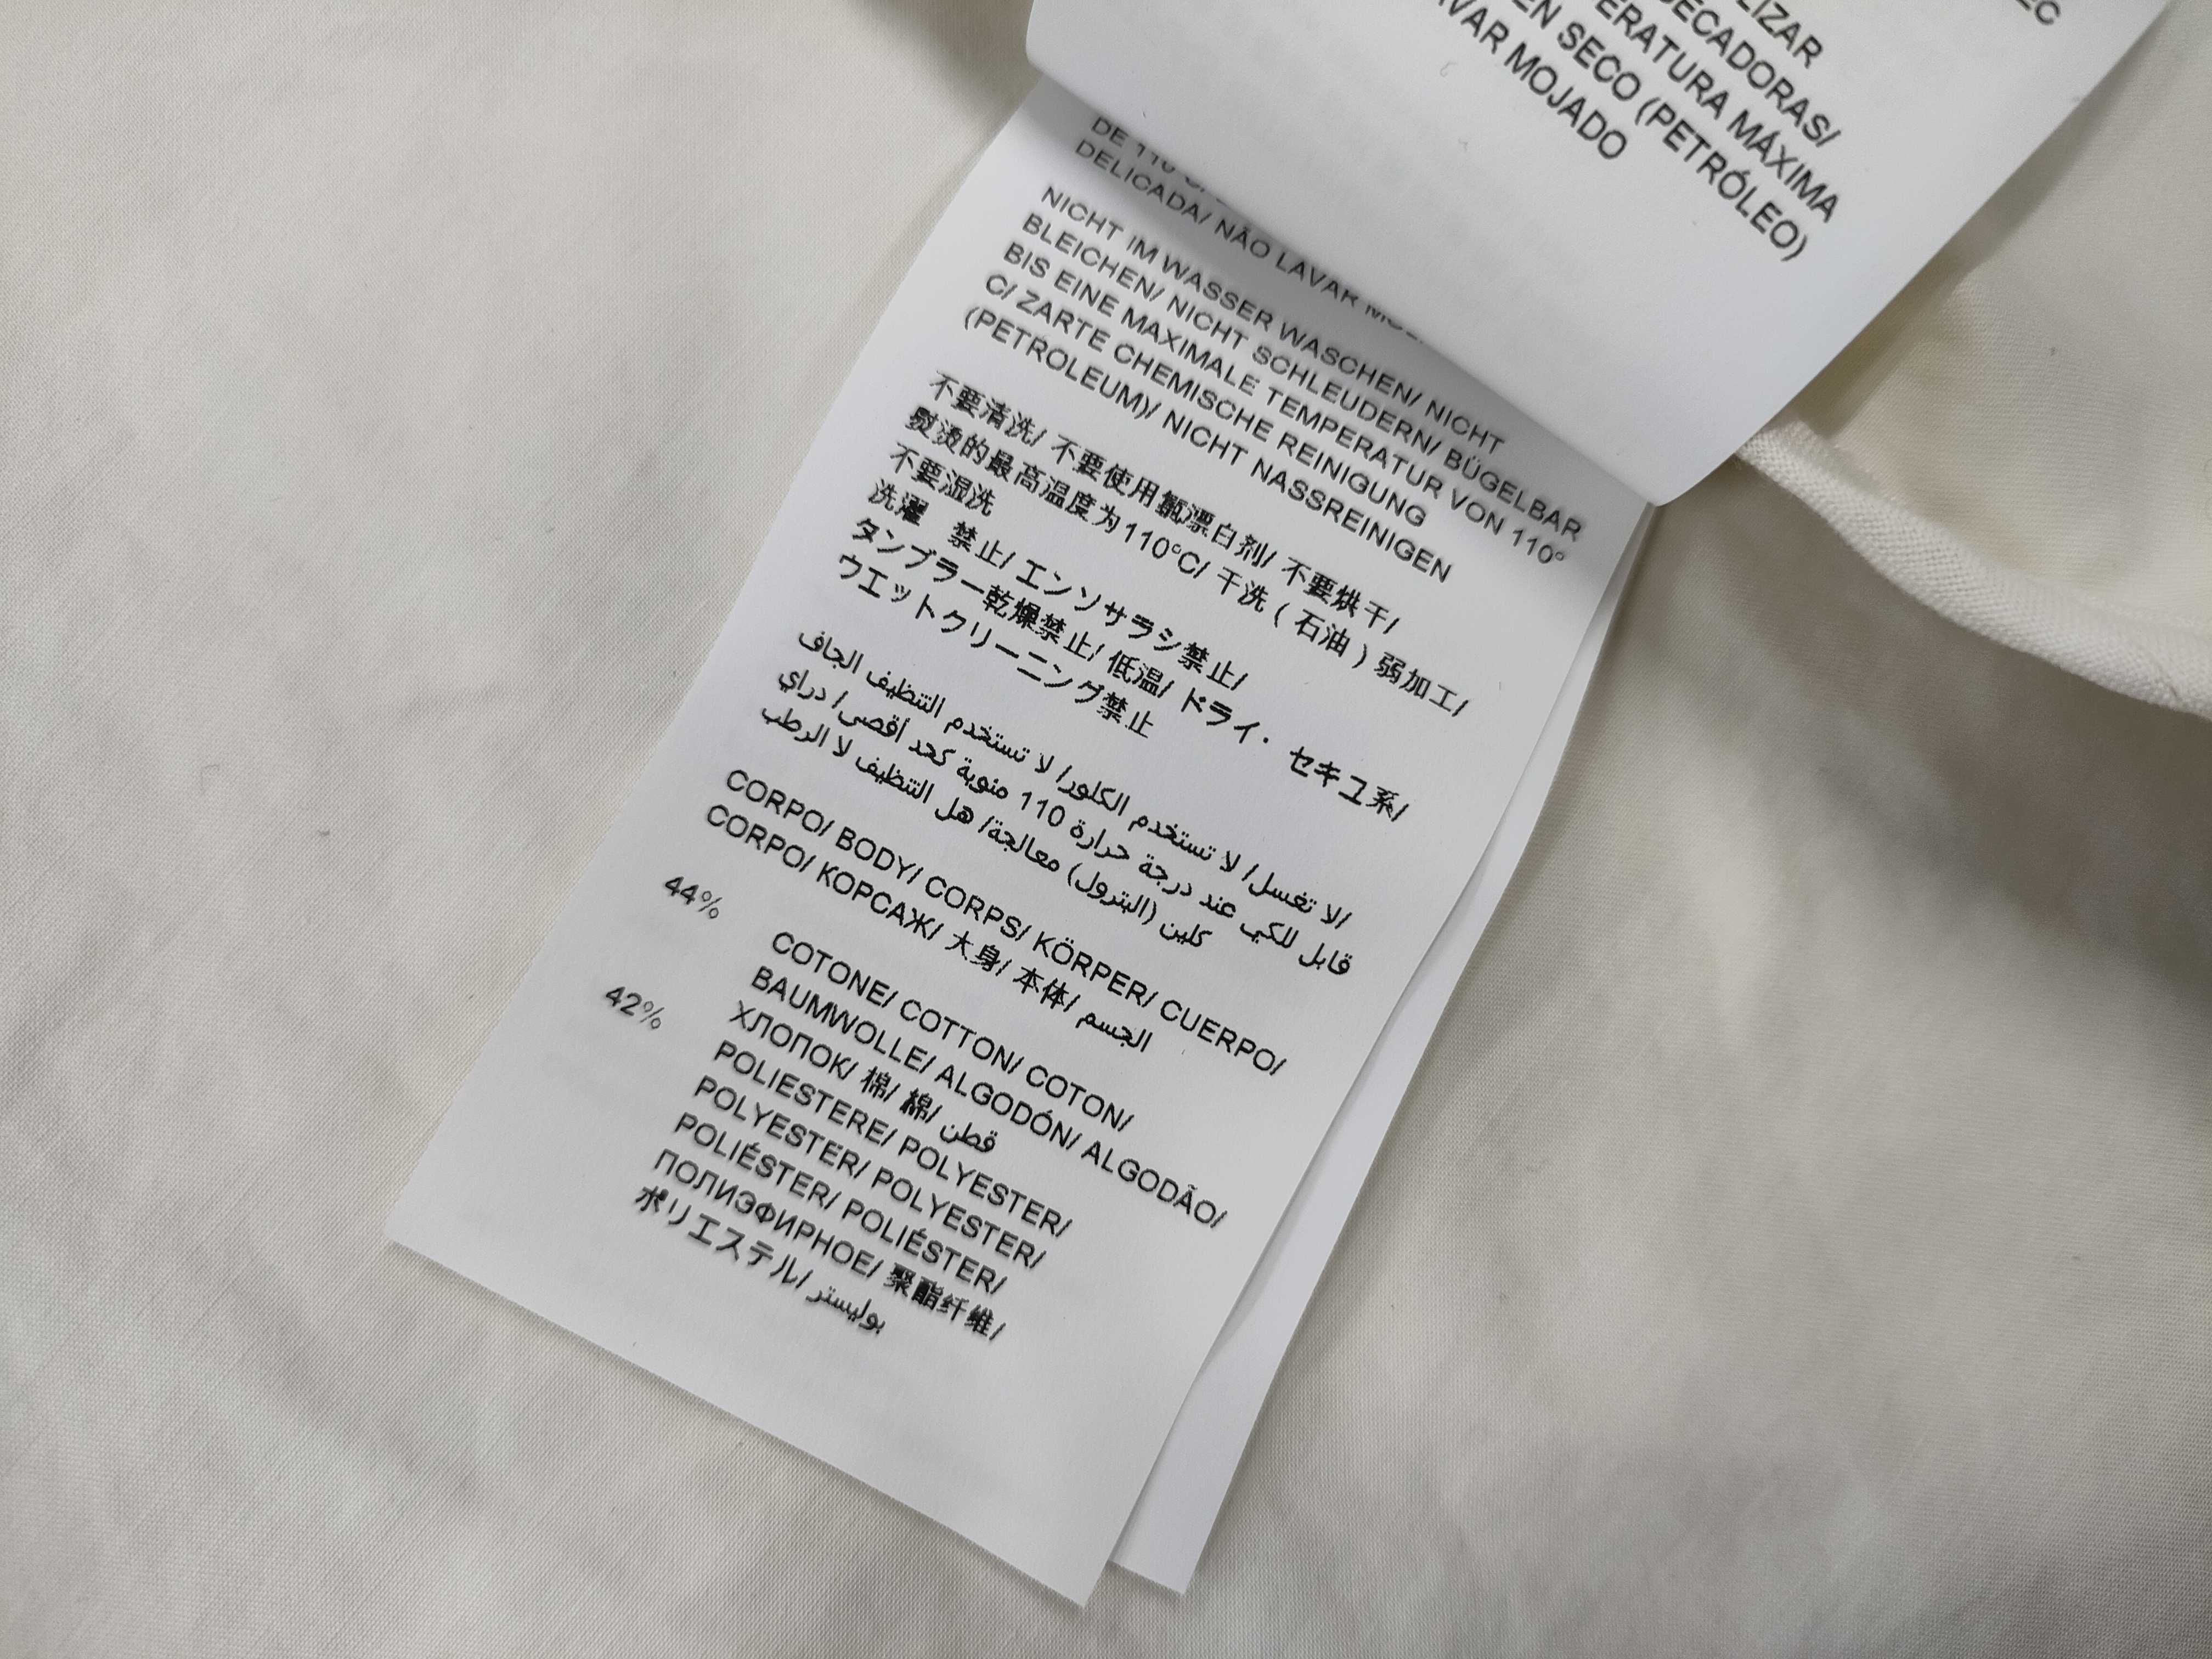 LIZAR
SECADORAS/
ERATURA MÁXIMA
EN SECO (PETRÓLEO)
VAR MOJADO
DE 110
DELICADA/ NÃO LAVAR
NICHT IM WASSER WASCHEN/ NICHT
BLEICHEN/ NICHT SCHLEUDERN/ BÜGELBAR
BIS EINE MAXIMALE TEMPERATUR VON 110°
C/ ZARTE CHEMISCHE REINIGUNG
(PETROLEUM)/ NICHT NASSREINIGEN
不要清洗/ 不要使用氯漂白剂/ 不要烘干/
熨烫的最高温度为110°C/ 干洗 ( 石油 ) 弱加工/
不要湿洗
洗濯 禁止/ エンソサラシ禁止/
タンブラー乾燥禁止/ 低温/ ドライ・ セキユ系/
ウエットクリーニング禁止
لا تغسل/ لا تستخدم الكلور/ لا تستخدم التنظيف الجاف/
قابل للكي عند درجة حرارة 110 مئوية كحد أقصى/ دراي
كلين (البترول) معالجة/ هل التنظيف لا الرطب
CORPO/ BODY/ CORPS/ KÖRPER/ CUERPO/
CORPO/ КОРСАЖ/ 大身/ 本体/ الجسم
44% COTONE/ COTTON/ COTON/
BAUMWOLLE/ ALGODÓN/ ALGODÃO/
ХЛОПОК/ 棉/ 綿/ قطن
42% POLIESTERE/ POLYESTER/
POLYESTER/ POLYESTER/
POLIÉSTER/ POLIÉSTER/
ПОЛИЭФИРНОЕ/ 聚酯纤维/
ポリエステル/ بوليستر